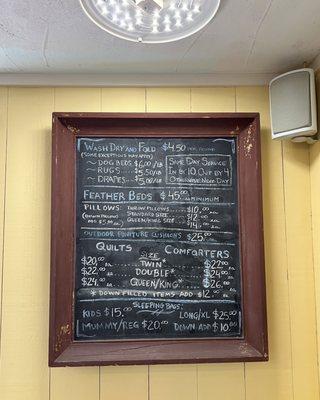 WASH DRY AND FOLD $4.50 PER POUND
(SOME EXCEPTIONS MAY APPLY)
~ DOG BEDS $6.00/LB
~ RUGS $5.50/LB
~ DRAPES $5.00/LB
SAME DAY SERVICE
IN BY 10 OUT BY 4
OTHERWISE NEXT DAY
FEATHER BEDS $45.00 MINIMUM
PILLOWS: THROW PILLOWS $10.00
STANDARD SIZE $12.00
QUEEN/KING SIZE $14.00
(DOWN PILLOWS
ADD $5.00)
OUTDOOR FURNITURE CUSHIONS $25.00
QUILTS SIZE COMFORTERS
$20.00 TWIN* $22.00
$22.00 DOUBLE* $24.00
$24.00 QUEEN/KING* $26.00
* DOWN FILLED ITEMS ADD $12.00 EA
SLEEPING BAGS:
KIDS $15.00 LONG/XL $25.00
MUMMY/REG $20.00 DOWN ADD $10.00